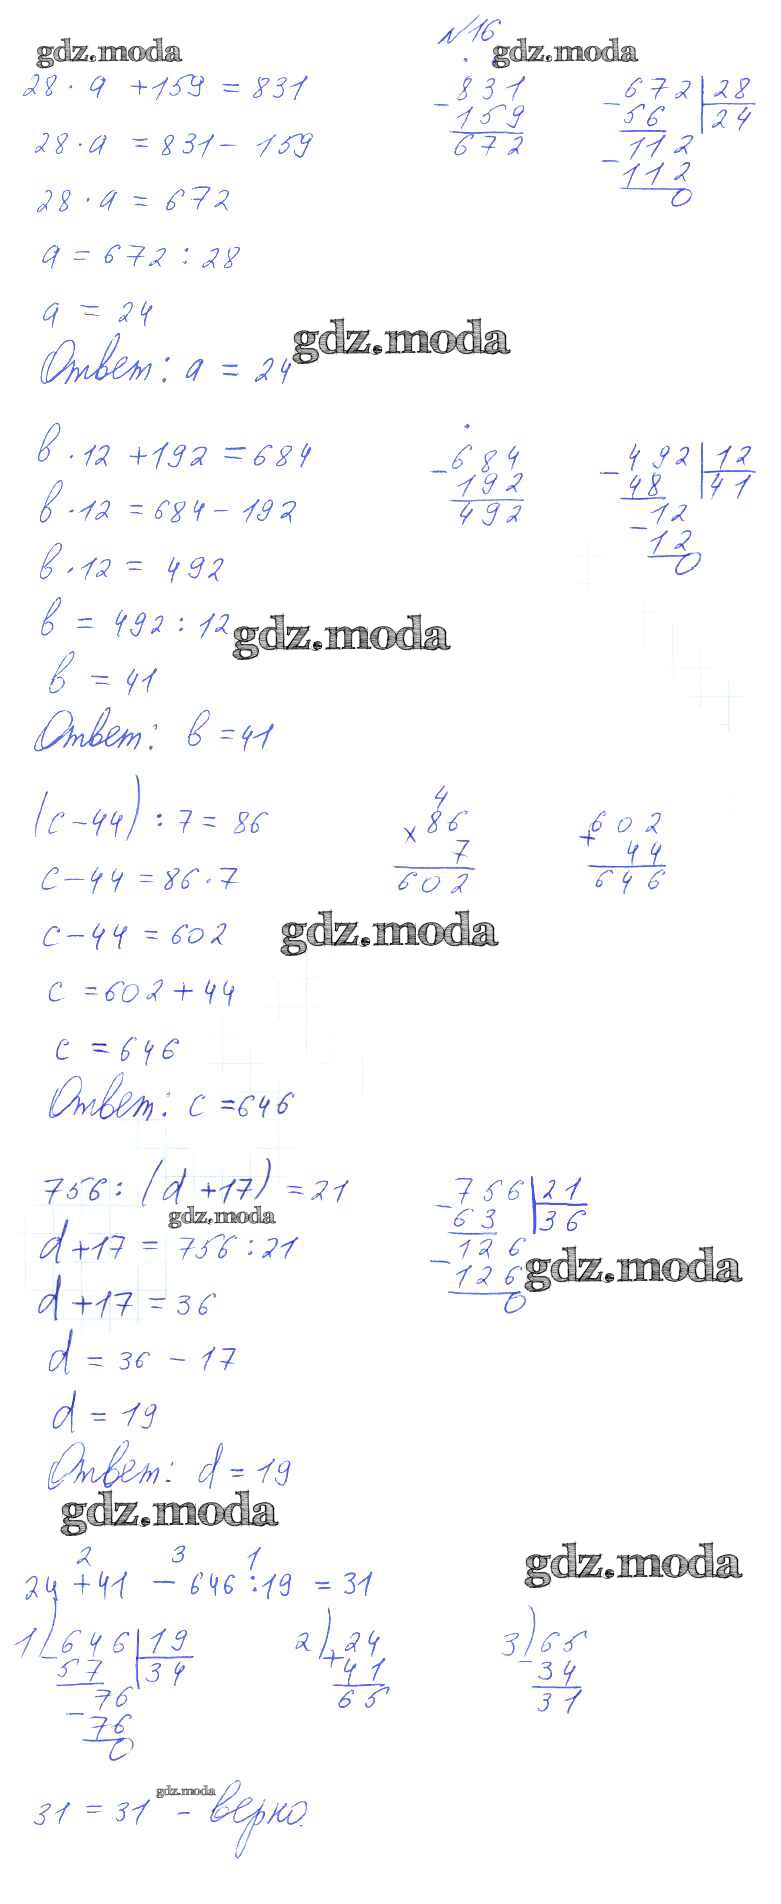 №16
gdz.moda gdz.moda
28 · a + 159 = 831
28 · a = 831 - 159
28 · a = 672
a = 672 : 28
a = 24
Ответ: a = 24
- 831
159
672
- 672 | 28
56 | 24
- 112
112
0
gdz.moda
в · 12 + 192 = 684
в · 12 = 684 - 192
в · 12 = 492
в = 492 : 12
в = 41
Ответ: в = 41
- 684
192
492
- 492 | 12
48 | 41
- 12
12
0
gdz.moda
(с - 44) : 7 = 86
с - 44 = 86 · 7
с - 44 = 602
с = 602 + 44
с = 646
Ответ: с = 646
4
× 86
7
602
+ 602
44
646
gdz.moda
756 : (d + 17) = 21
gdz.moda
d + 17 = 756 : 21
d + 17 = 36
d = 36 - 17
d = 19
Ответ: d = 19
- 756 | 21
63 | 36
- 126
126
0
gdz.moda
gdz.moda
gdz.moda
2 3 1
24 + 41 - 646 : 19 = 31
1) - 646 | 19
57 | 34
- 76
76
0
2) + 24
41
65
3) - 65
34
31
gdz.moda
31 = 31 - верно.